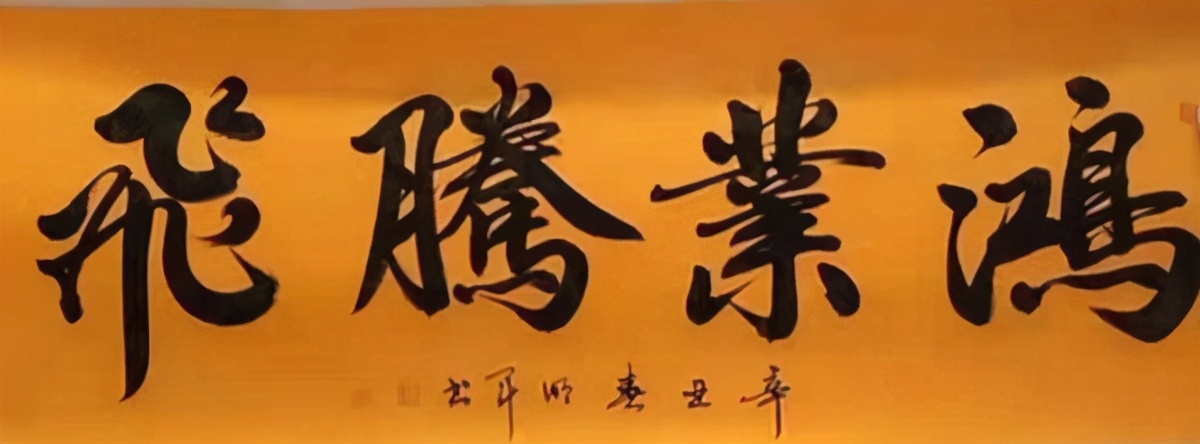 鴻業騰飛
辛丑春明軍书